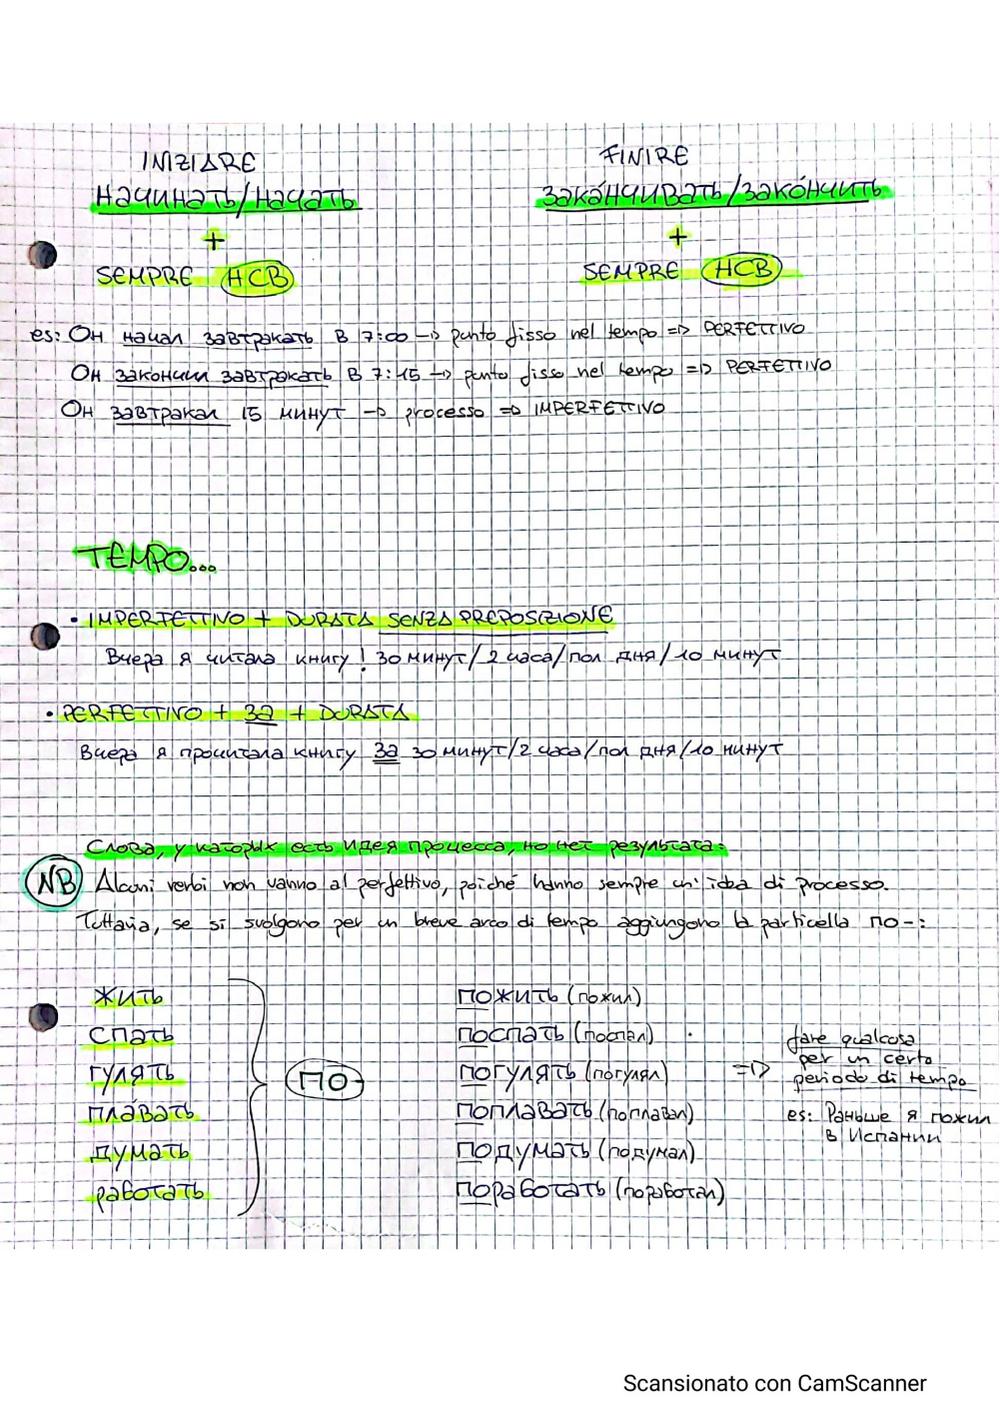 INIZIARE
начинать/начать
+
SEMPRE НСВ
FINIRE
зака́нчивать/зако́нчить
+
SEMPRE НСВ
es: Он начал завтракать в 7:00 → punto fisso nel tempo => PERFETTIVO
Он закончил завтракать в 7:15 → punto fisso nel tempo => PERFETTIVO
Он завтракал 15 минут → processo => IMPERFETTIVO
TEMPO...
• IMPERFETTIVO + DURATA SENZA PREPOSIZIONE
Вчера я читала книгу ! 30 минут/2 часа/пол дня/10 минут
• PERFETTIVO + за + DURATA
Вчера я прочитала книгу за 30 минут/2 часа/пол дня/10 минут
Слова, у каторых есть идея процесса, но нет результата:
NB Alcuni verbi non vanno al perfettivo, poiché hanno sempre un'idea di processo.
Tuttavia, se si svolgono per un breve arco di tempo aggiungono la particella по-:
жить
спать
гулять
пла́вать
думать
работать
ПО-
пожить (пожил)
поспать (поспал)
погулять (погулял)
поплавать (поплавал)
подумать (подумал)
поработать (поработал)
=> fare qualcosa
per un certo
periodo di tempo
es: Раньше я пожил
в Испании
Scansionato con CamScanner